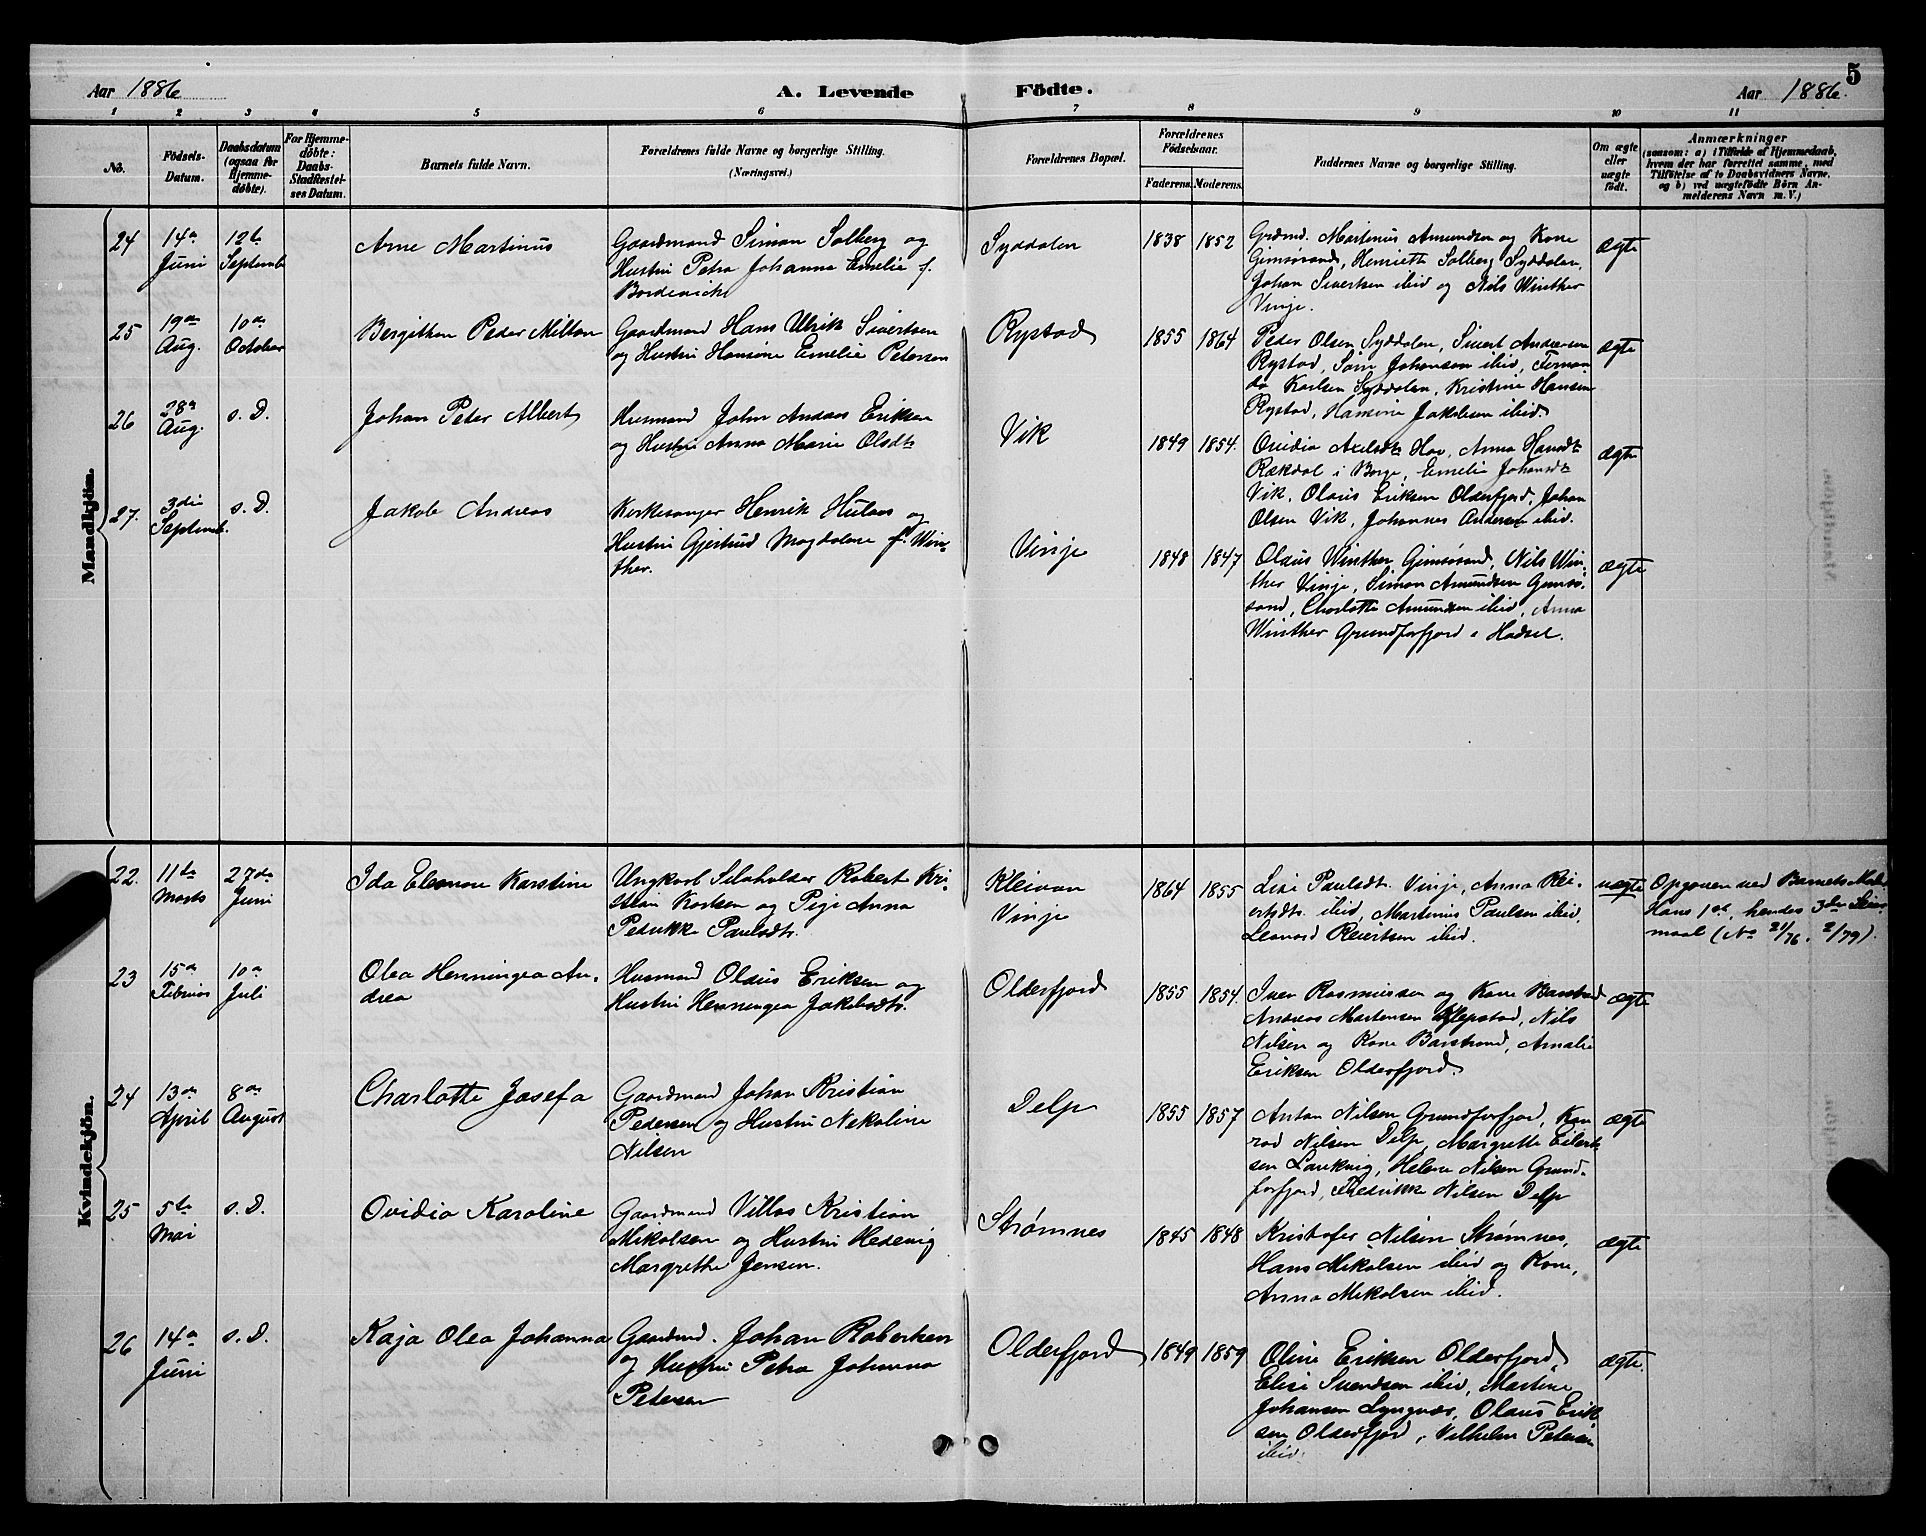 5
Aar 1886
A. Levende Födte.
Aar 1886.
1 2 3 4 5 6 7 8 9 10 11
No.
Födsels-Datum.
Daabsdatum (ogsaa for Hjemme-döbte).
For Hjemme-döbte: Daabs-Stadfæstel-ses Datum.
Barnets fulde Navn.
Forældrenes fulde Navne og borgerlige Stilling.
(Næringsvei.)
Forældrenes Bopæl.
Forældrenes Födselsaar.
Faderens. Moderens.
Faddernes Navne og borgerlige Stilling.
Om ægte eller uægte födt.
Anmærkninger
(saasom: a) i Tilfælde af Hjemmedaab,
hvem der har forrettet samme, med
Tilföielse af to Daabsvidners Navne,
og b) ved uægtefödte Börn An-
melderens Navn m. V.)
Mandkjön.
24
14de Juni
12te Septemb
Arne Martinus
Gaardmand Simon Solberg og
Hustru Petra Johanna Emelie f.
Bordevick
Syddalen
1838 1852
Grdmd. Martinus Amundsen og Kone
Gimsösand, Henriette Solberg Syddalen,
Johan Sivertsen ibid og Nils Winther
Vinje.
ægte
25
19de Aug.
10de October
Bergithon Peder Milton
Gaardmand Hans Ulrik Sivertsen
og Hustru Hansine Emelie Petersen
Rystad
1855 1864
Peder Olsen Syddalen, Sivert Andersen
Rystad, Sörn Johansen ibid, Fernan-
da Karlsen Syddalen, Kristine Hansen
Rystad, Hansine Jakobsen ibid.
ægte
26
28de Aug.
s. D.
Johan Peter Albert
Husmand John Andeas Eriksen
og Hustru Anna Marie Olsdt
Vik
1849 1854.
Ovidia Axelsdt Hov, Anna Hansdt
Rækdal i Borge, Emelie Johansdt
Vik, Olaus Eriksen Olderfjord, Johan
Olsen Vik, Johannes Andersen ibid.
ægte
27.
3die Septemb.
s. D.
Jakob Andreas
Kirkesanger Henrik Hulaas og
Hustru Gjertrud Magdalene f. Win-
ther.
Vinje
1848 1847
Olaus Winther Gimsösand, Nils Win-
ther Vinje, Simon Amundsen Gimsö-
sand, Charlotte Amundsen ibid, Anna
Winther Grundforfjord i Hadsel.
ægte
Kvindekjön.
22.
11te Marts
27de Juni
Ida Eleonore Karstine
Ungkarl Selvholder Robert Kri-
stian Karlsen og Pige Anna
Pedrikke Paulsdt.
Kleivan
Vinje
1864 1855
Lise Paulsdt. Vinje, Anna Rei-
ertsdt. ibid, Martinus Paulsen ibid,
Leonard Reiertsen ibid.
uægte
Opgaven ved Barnets Moder
Hans 1st, hendes 3die Leier-
maal (No 21/76, 2/79).
23
15de Februar
10de Juli
Olea Henningea An-
drea
Husmand Olaus Eriksen og
Hustru Henningea Jakobsdt.
Olderfjord
1855 1854.
Iver Rasmussen og Kone Barstrand
Andreas Martensen Klepstad, Nils
Nilsen og Kone Barstrand, Amalie
Eriksen Olderfjord.
ægte
24
13de April
8de August
Charlotte Josefa
Gaardmand Johan Kristian
Pedersen og Hustru Nekoline
Nilsen
Delp
1855 1857
Anton Nilsen Grundforfjord, Kon-
rad Nilsen Delp, Margrethe Eilert-
sen Laukvig, Helene Nilsen Grund-
forfjord, Fredrikke Nilsen Delp
ægte
25
5te Mai
s. D.
Ovidia Karoline
Gaardmand Villas Kristian
Mikalsen og Hustru Hedevig
Margrethe Jensen.
Strømnes
1845 1848
Kristofer Nilsen Strømnes,
Hans Mikalsen ibid og Kone,
Anna Mikalsen ibid.
ægte
26
14de Juni
s. D.
Kaja Olea Johanna
Gaardmd. Johan Robertsen
og Hustru Petra Johanna
Petersen
Olderfjord
1849 1859
Oline Eriksen Olderfjord,
Elise Svendsen ibid, Martine
Johansen Lyngvær, Olaus Erik-
sen Olderfjord, Vilhelm Petersen
ibid.
ægte.